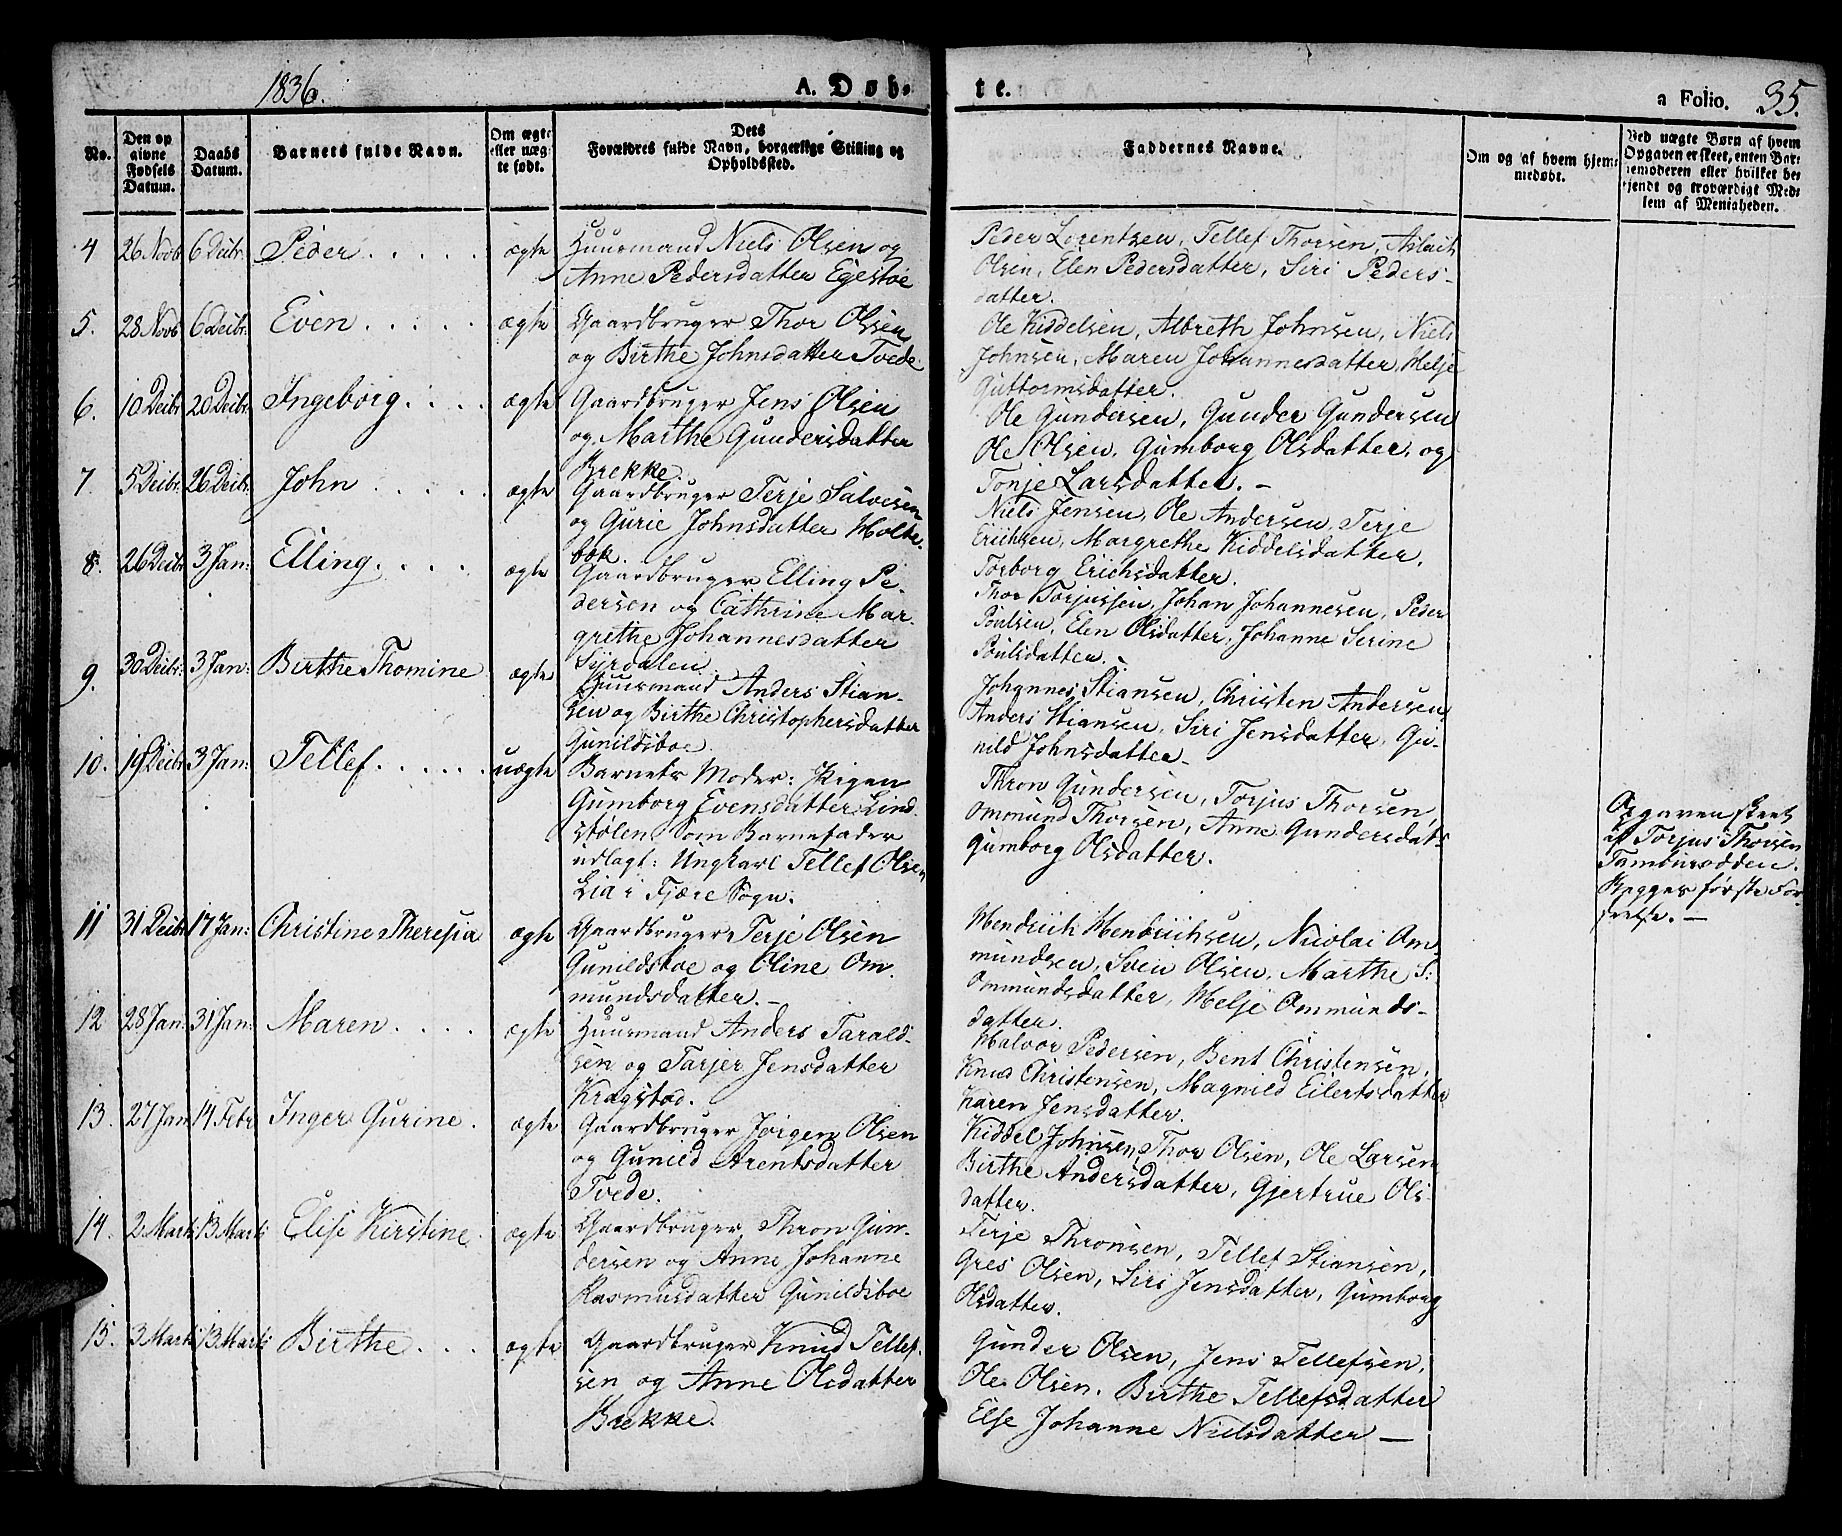 1836.
A. Døb-
te.
a Folio. 35.
No.
Den op
givne
Fødsels
Datum.
Daabs
Datum.
Barnets fulde Navn.
Om ægte
eller uæg-
te født.
Dets
Forældres fulde Navn, borgerlige Stilling og
Opholdssted.
Faddernes Navne.
Om og af hvem hjem-
medøbt.
Ved uægte Børn af hvem
Opgaven er skeet, enten Bar-
nemoderen eller hvilket be-
kjendt og troværdigt Med-
lem af Menigheden.
4 26 Novb 6 Decbr. Peder . . . . . ægte
Huusmand Niels Olsen og
Anne Pedersdatter Egestøe
Peder Lorentsen, Tellef Thorsen, Aslach
Olsen, Elen Pedersdatter, Siri Peders-
datter.
5. 28 Novb 6 Decbr. Even . . . . . ægte
Gaardbruger Thor Olsen
og Birthe Johnsdatter Tvede.
Ole Kiddelsen, Albreth Johnsen, Niels
Johnsen, Maren Johannesdatter, Helje
Guttormsdatter.
6. 10 Decbr 20 Decbr. Ingeborg . . . . ægte
Gaardbruger Jens Olsen
og Marthe Gundersdatter
Brekke.
Ole Gundersen, Gunder Gundersen
Ole Olsen, Gumborg Olsdatter, og
Tonje Larsdatter. –
7. 5 Decbr. 26 Decbr. John . . . . . ægte
Gaardbruger Terje Salvesen
og Gurie Johnsdatter Holte-
bøe.
Niels Jensen, Ole Andersen, Terje
Erichsen, Margrethe Kiddelsdatter,
Torborg Erichsdatter.
8. 26 Decbr 3 Jan: Elling . . . . ægte
Gaardbruger Elling Pe-
dersen og Cathrine Mar-
grethe Johannesdatter
Syrdalen.
Thor Torjussen, Johan Johannesen, Peder
Poulsen, Elen Olsdatter, Johanne Serine
Poulsdatter.
9. 30 Decbr: 3 Jan: Birthe Thomine ægte
Huusmand Anders Stian-
sen og Birthe Christophersdatter
Gunildsboe.
Johannes Stiansen, Christen Andersen,
Anders Stiansen, Siri Jensdatter, Gu-
nild Johnsdatter –
10. 19 Decbr 3 Jan: Tellef . . . . . uægte
Barnets Moder: Pigen
Gumborg Evensdatter Lind-
stølen. Som Barnefader
udlagt: Ungkarl Tellef Olsen
Lia i Fjære Sogn.
Thron Gundersen, Torjus Thorsen,
Ommund Thorsen, Anne Gundersdat:
Gumborg Olsdatter.
Opgaven skeet
af Torjus Thorsen
Begges første For-
seelse. –
11 31 Decbr 17 Jan: Christine Theresia ægte
Gaardbruger Terje Olsen
Gunildsboe og Oline Om-
mundsdatter. –
Hendrich Hendrichsen, Nicolai Om-
mundsen, Sven Olsen, Marthe S:
Ommundsdatter, Helje Ommunds-
datter.
12 28 Jan: 31 Jan: Maren . . . . ægte
Huusmand Anders Tarald-
sen og Tarjer Jensdatter
Kragstad.
Halvor Pedersen, Bent Christensen,
Knud Christensen, Magnild Eilertsdatter
Karen Jensdatter.
13. 27 Jan 14 Febr Inger Gurine . ægte
Gaardbruger Jörgen Olsen
og Gunild Arentsdatter
Tvede.
Kiddel Johnsen, Thor Olsen, Ole Larsen
Birthe Andersdatter, Gjertrue Ols-
datter.
14. 2 Marti 13 Marti Elise Kirstine . ægte
Gaardbruger Thron Gun-
dersen og Anne Johanne
Rasmusdatter Gunildsboe
Terje Thronsen, Tellef Stiansen,
Gres Olsen, Siri Jensdatter, Gumborg
Olsdatter.
15. 3 Marti 13 Marti Birthe . . . ægte
Gaardbruger Knud Tellef-
sen og Anne Olsdatter
Brekke.
Gunder Olsen, Jens Tellefsen,
Ole Olsen. Birthe Tellefsdatter
Else Johanne Nielsdatter –